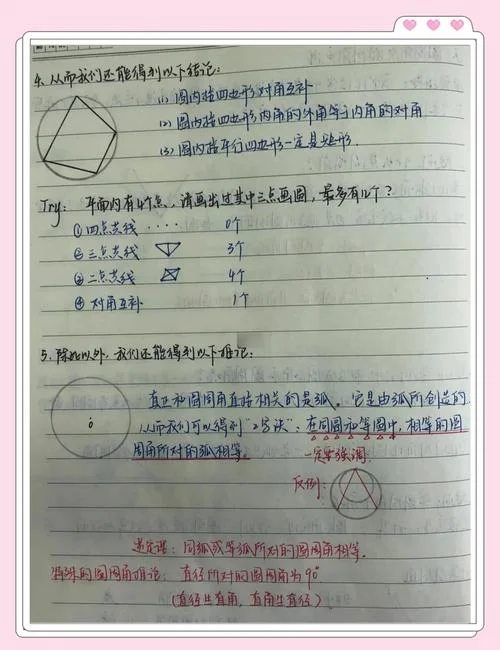 4. 从而我们还能得到以下结论:
(1) 圆内接四边形对角互补
(2) 圆内接四边形内角的外角等于内角的对角
(3) 圆内接平行四边形一定是矩形.
Try: 平面内有4个点, 请画出过其中三点画圆, 最多有几个?
① 四点共线 ···· 0个
② 三点共线 3个
③ 二点共线 4个
④ 对角互补 1个
5. 除此以外, 我们还能得到以下推论:
真正和圆周角直接相关的是弧, 它是由弧所创造的
从而我们可以得到 : 在同圆和等圆中, 相等的圆
周角所对的弧相等.
一定要强调.
反例:
逆定理: 同弧或等弧所对的圆周角相等.
特殊的圆周角推论: 直径所对的圆周角为90°
(直径生直角, 直角生直径)